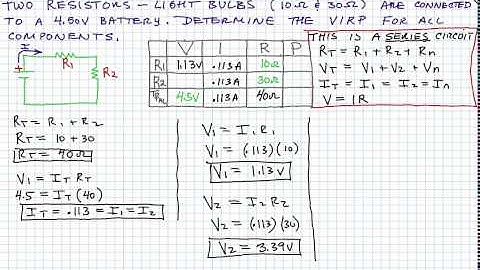 TWO RESISTORS - LIGHT BULBS (10Ω & 30Ω) ARE CONNECTED
TO A 4.50V BATTERY. DETERMINE THE VIRP FOR ALL
COMPONENTS.
I
+
R1
R2
V I R P
R1 1.13V .113A 10Ω
R2 .113A 30Ω
4.5V .113A 40Ω
THIS IS A SERIES CIRCUIT
RT = R1 + R2 + Rn
VT = V1 + V2 + Vn
IT = I1 = I2 = In
V = IR
RT = R1 + R2
RT = 10 + 30
RT = 40Ω
V1 = IT RT
4.5 = IT (40)
IT = .113 = I1 = I2
V1 = I1 R1
V1 = (.113)(10)
V1 = 1.13V
V2 = I2 R2
V2 = (.113)(30)
V2 = 3.39V